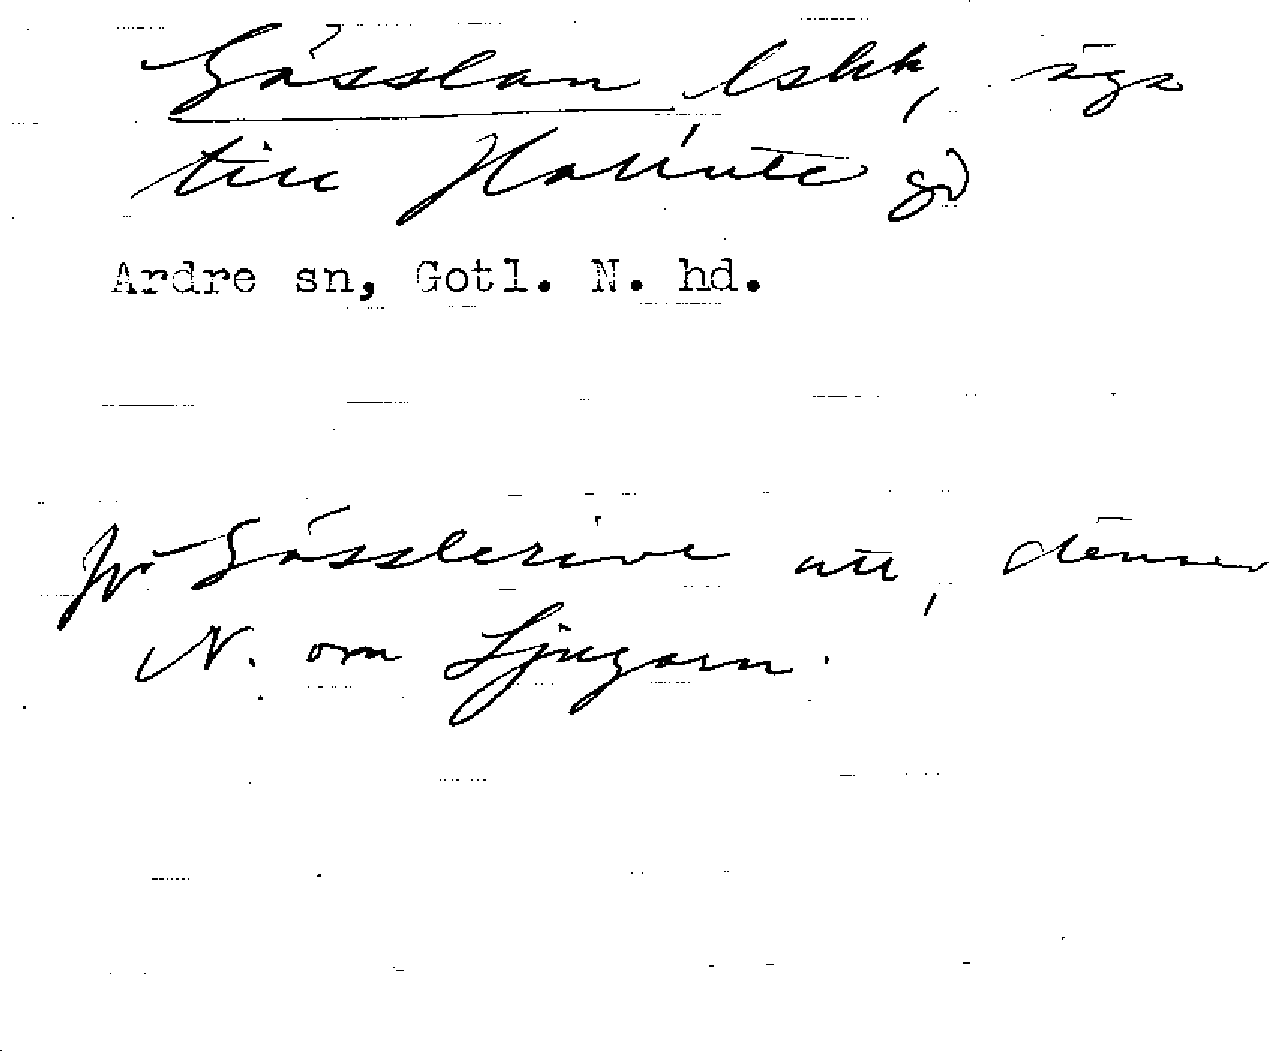 Gässlan, lskk, äga
till Hallute gd
Ardre sn, Gotl. N. hd.
Jfr Gässlerive att,
N. om Ljugarn.